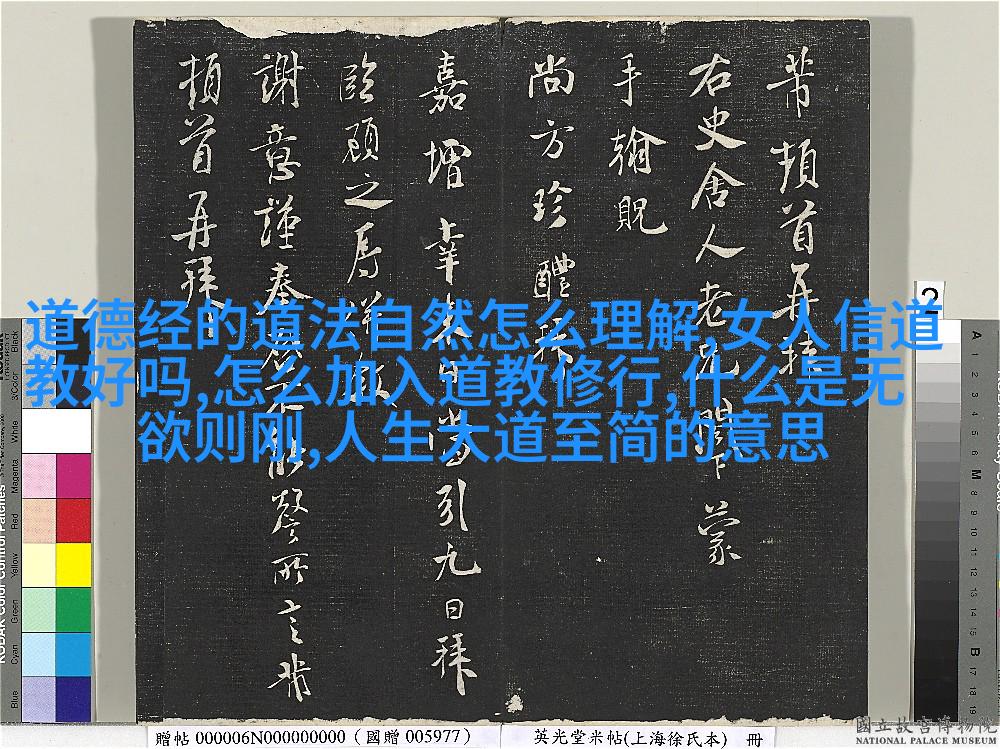 芾頓首再拜
右史舍人老兄閣下蒙
手翰貺
尚方珍醴拜
嘉增幸來日當引九日拜
臨顧之辱
謝意謹奉啓不能罄所言芾
頓首再拜
道德经的道法自然怎么理解,女人信道
教好吗,怎么加入道教修行,什么是无
欲则刚,人生大道至简的意思
2
Black
3/Color
White
Magenta
Red
Yellow
Green
Cyan
Blue
KODAK Color Control Patches
A 1 2 3 4 5 6 M 8 9 10 11 12 13 14 15 B 17 18 19
贈帖 000006N000000000 (國贈 005977) 英光堂米帖(上海徐氏本) 冊
國立故宮博物院
NATIONAL PALACE MUSEUM